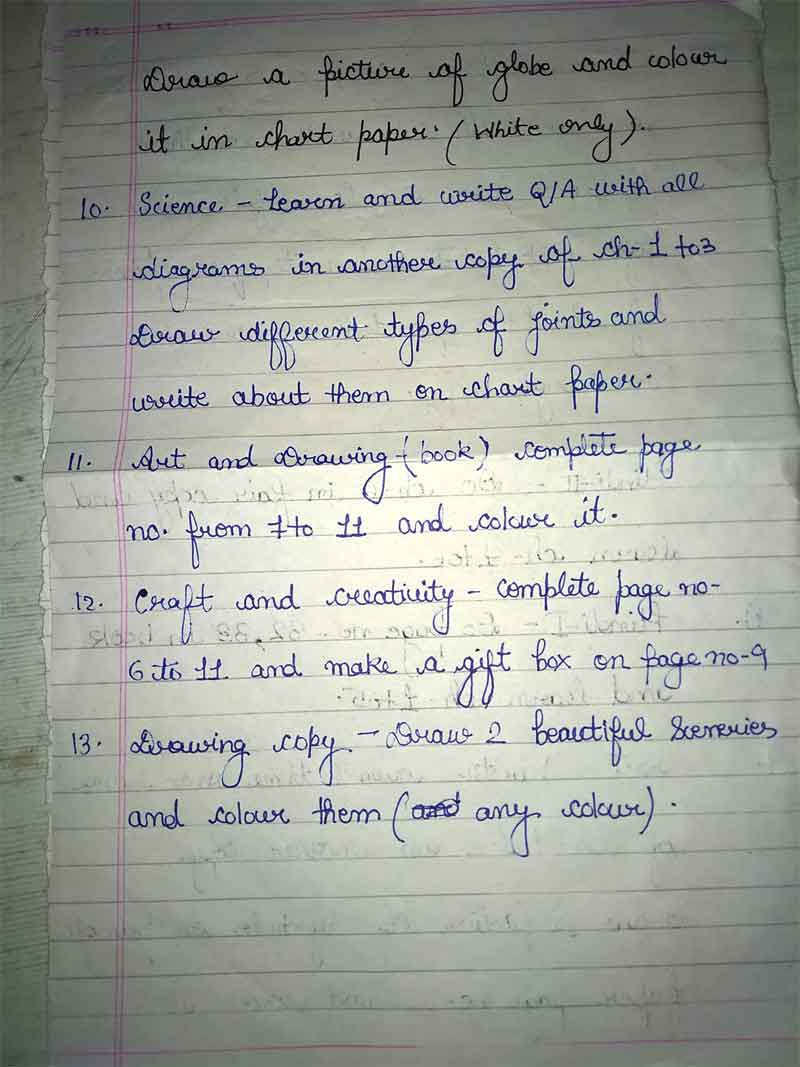 Draw a picture of globe and colour
it in chart paper. (White only).
10. Science - Learn and write Q/A with all
diagrams in another copy of ch-1 to 3
Draw different types of joints and
write about them on chart paper.
11. Art and Drawing - (book) complete page
no. from 7 to 11 and colour it.
12. Craft and creativity - complete page no-
6 to 11 and make a gift box on page no-9
13. Drawing copy. - Draw 2 beautiful Sceneries
and colour them (and any colour).